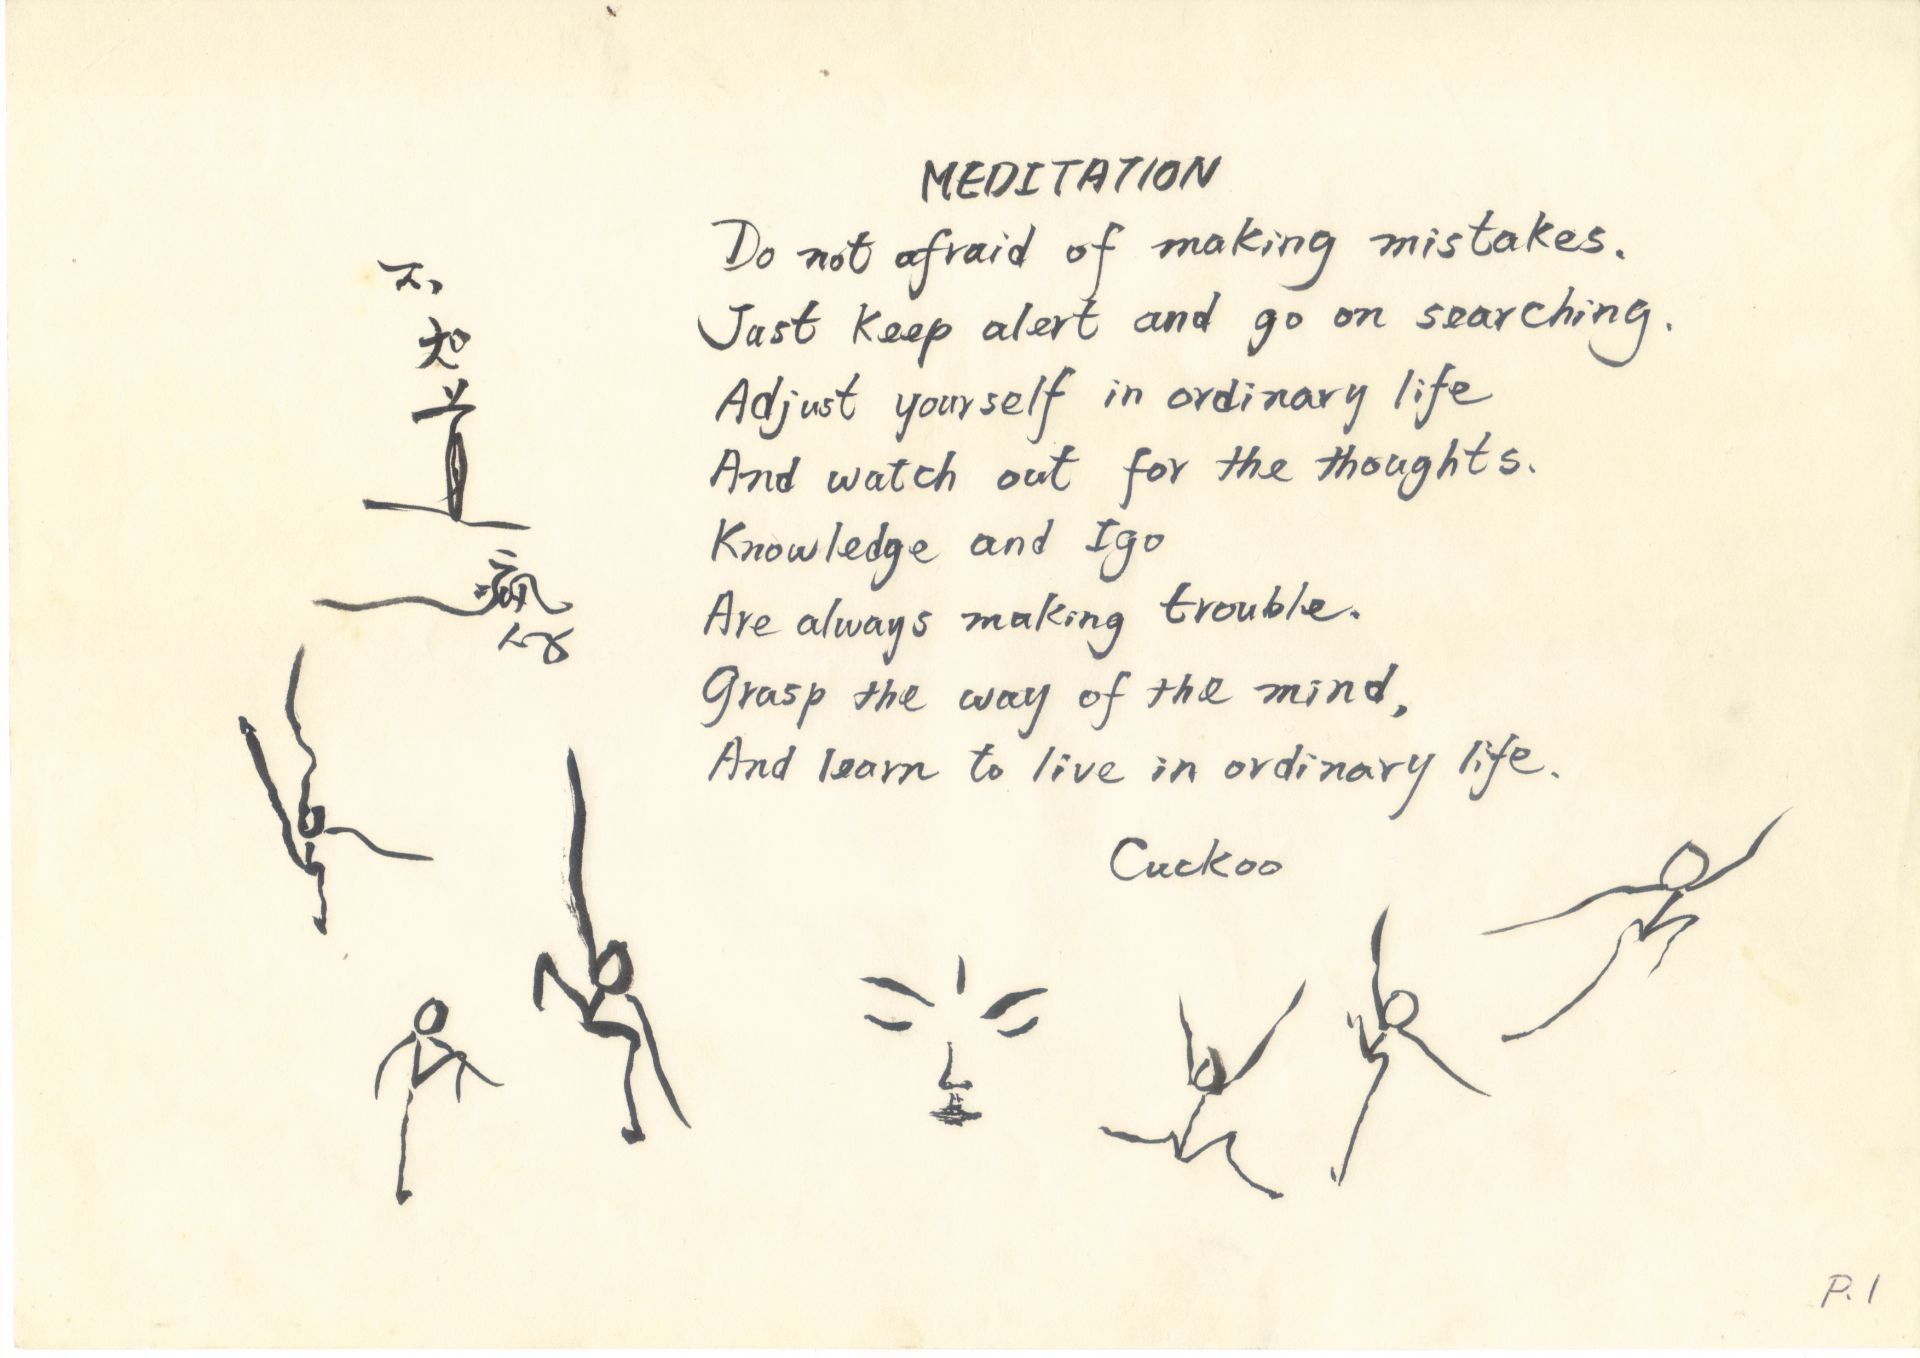 MEDITATION
Do not afraid of making mistakes.
Just keep alert and go on searching.
Adjust yourself in ordinary life
And watch out for the thoughts.
Knowledge and Igo
Are always making trouble.
Grasp the way of the mind,
And learn to live in ordinary life.
Cuckoo
不
知
道
P.1